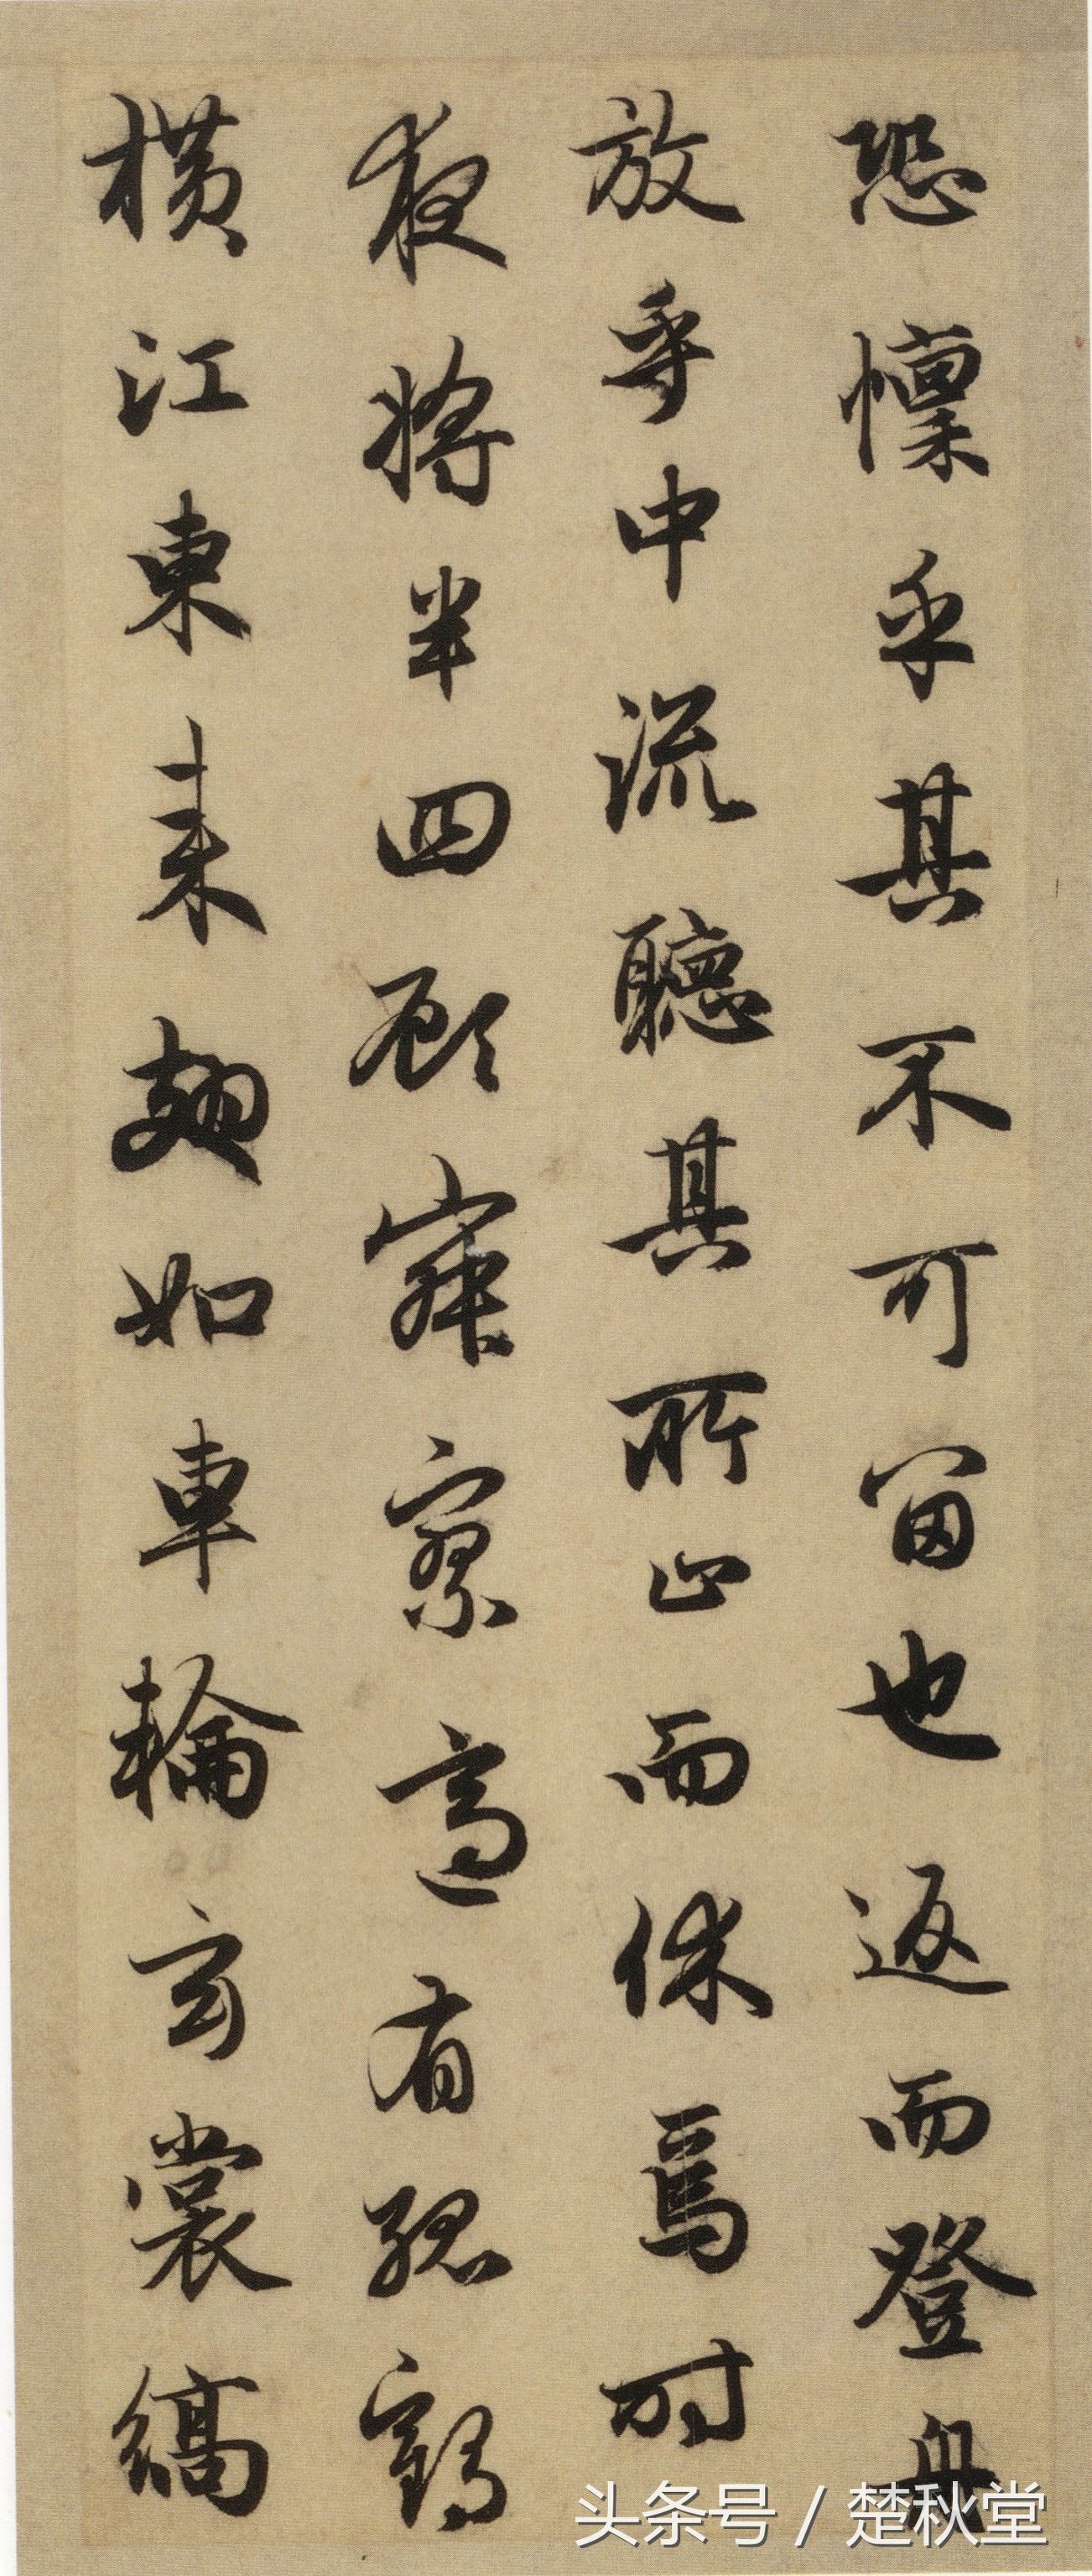 恐懍乎其不可留也返而登舟
放乎中流聽其所止而休焉时
夜將半四顾寂寥適有孤鹤
横江東来翅如車輪玄裳縞
头条号 / 楚秋堂